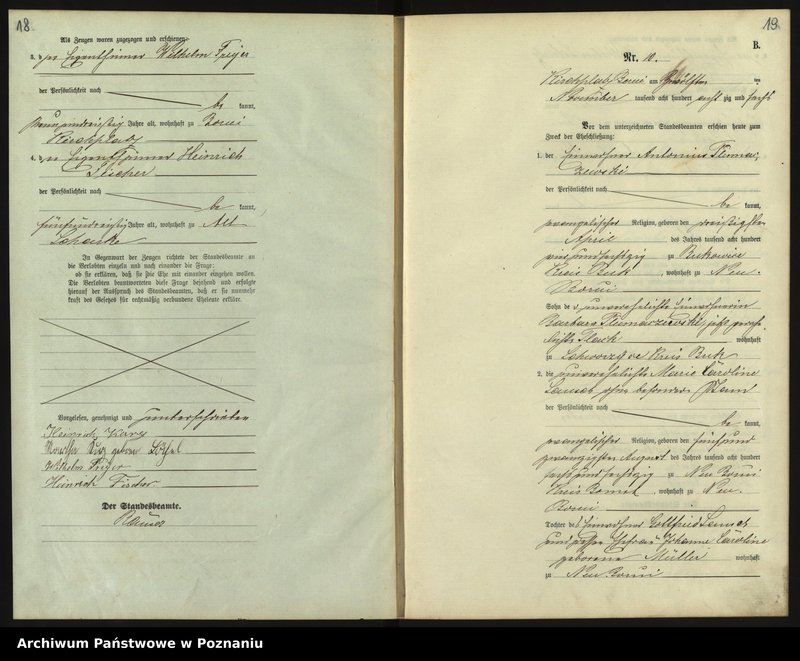 18
Als Zeugen waren zugezogen und erschienen:
3. der Eigenthümer Wilhelm Freyer
der Persönlichkeit nach
be kannt,
neunundreißig Jahre alt, wohnhaft zu Bomi
Kirchplatz
4. der Eigenthümer Heinrich
Fischer
der Persönlichkeit nach
be kannt,
fünfundreißig Jahre alt, wohnhaft zu Alt
In Gegenwart der Zeugen richtete der Standesbeamte an
die Verlobten einzeln und nach einander die Frage:
ob sie erklären, daß sie die Ehe mit einander eingehen wollen.
Die Verlobten beantworteten diese Frage bejahend und erfolgte
hierauf der Ausspruch des Standesbeamten, daß er sie nunmehr
kraft des Gesetzes für rechtmäßig verbundene Eheleute erkläre.
Vorgelesen, genehmigt und unterschrieben
Heinrich Kurz
Kurz geboren
Wilhelm Freyer
Heinrich Fischer
Der Standesbeamte.
19
B.
Nr. 10.
Kirchplatz Bomi am zwölften ten
November tausend acht hundert acht zig und sechs
Vor dem unterzeichneten Standesbeamten erschien heute zum
Zweck der Eheschließung:
1. der Einwohner Antonius Tluma-
czewski
der Persönlichkeit nach
be kannt,
evangelischer Religion, geboren den dreißigsten
April des Jahres tausend acht hundert
einundsechzig zu Bukowiec
Kreis Buk, wohnhaft zu Neu-
Bomi
Sohn der unverehelichte Einwohnerin
Barbara Tlumaczewski jetzt
wohnhaft
zu Kreis Buk
2. die unverehelichte Marie Caroline
ohne besonderen Stand
der Persönlichkeit nach
be kannt,
evangelischer Religion, geboren den fünfund
zwanzigsten August des Jahres tausend acht hundert
sechsundsechzig zu Neu Bomi
Kreis Bomst, wohnhaft zu Neu-
Bomi
Tochter des Einwohner Gottfried
und Ehefrau Johanne Caroline
geborene Müller wohnhaft
zu Neu Bomi
Archiwum Państwowe w Poznaniu